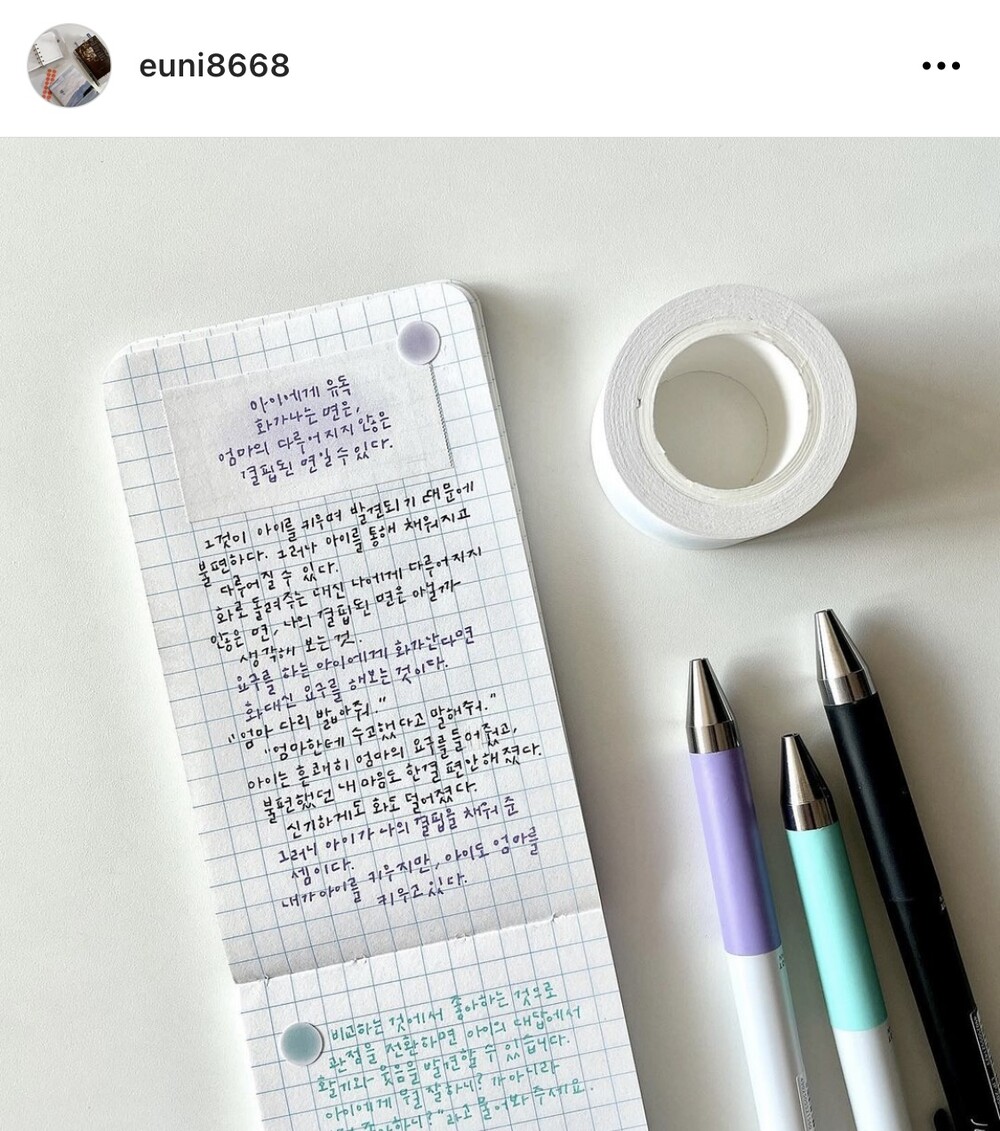 euni8668
아이에게 유독
화가나는 면은,
엄마의 다루어 지지 않은
결핍된 면일 수 있다.
그것이 아이를 키우며 발견되기 때문에
불편하다. 그러나 아이를 통해 채워지고
다루어 질 수 있다.
화로 돌려주는 대신 나에게 다루어 지지
않은 면, 나의 결핍된 면은 아닐까
생각해 보는 것.
요구를 하는 아이에게 화가난다면
화대신 요구를 해보는 것이다.
"엄마 다리 밟아줘."
"엄마한테 수고했다고 말해줘."
아이는 흔쾌히 엄마의 요구를 들어줬고,
불편했던 내 마음도 한결 편안해졌다.
신기하게도 화도 덜어졌다.
그러니 아이가 나의 결핍을 채워 준
셈이다.
내가 아이를 키우지만, 아이도 엄마를
키우고 있다.
비교하는 것에서 좋아하는 것으로
관점을 전환하면 아이의 대답에서
활기와 웃음을 발견할 수 있습니다.
아이에게 뭘 잘하니? 가 아니라
하니?"라고 물어봐 주세요.